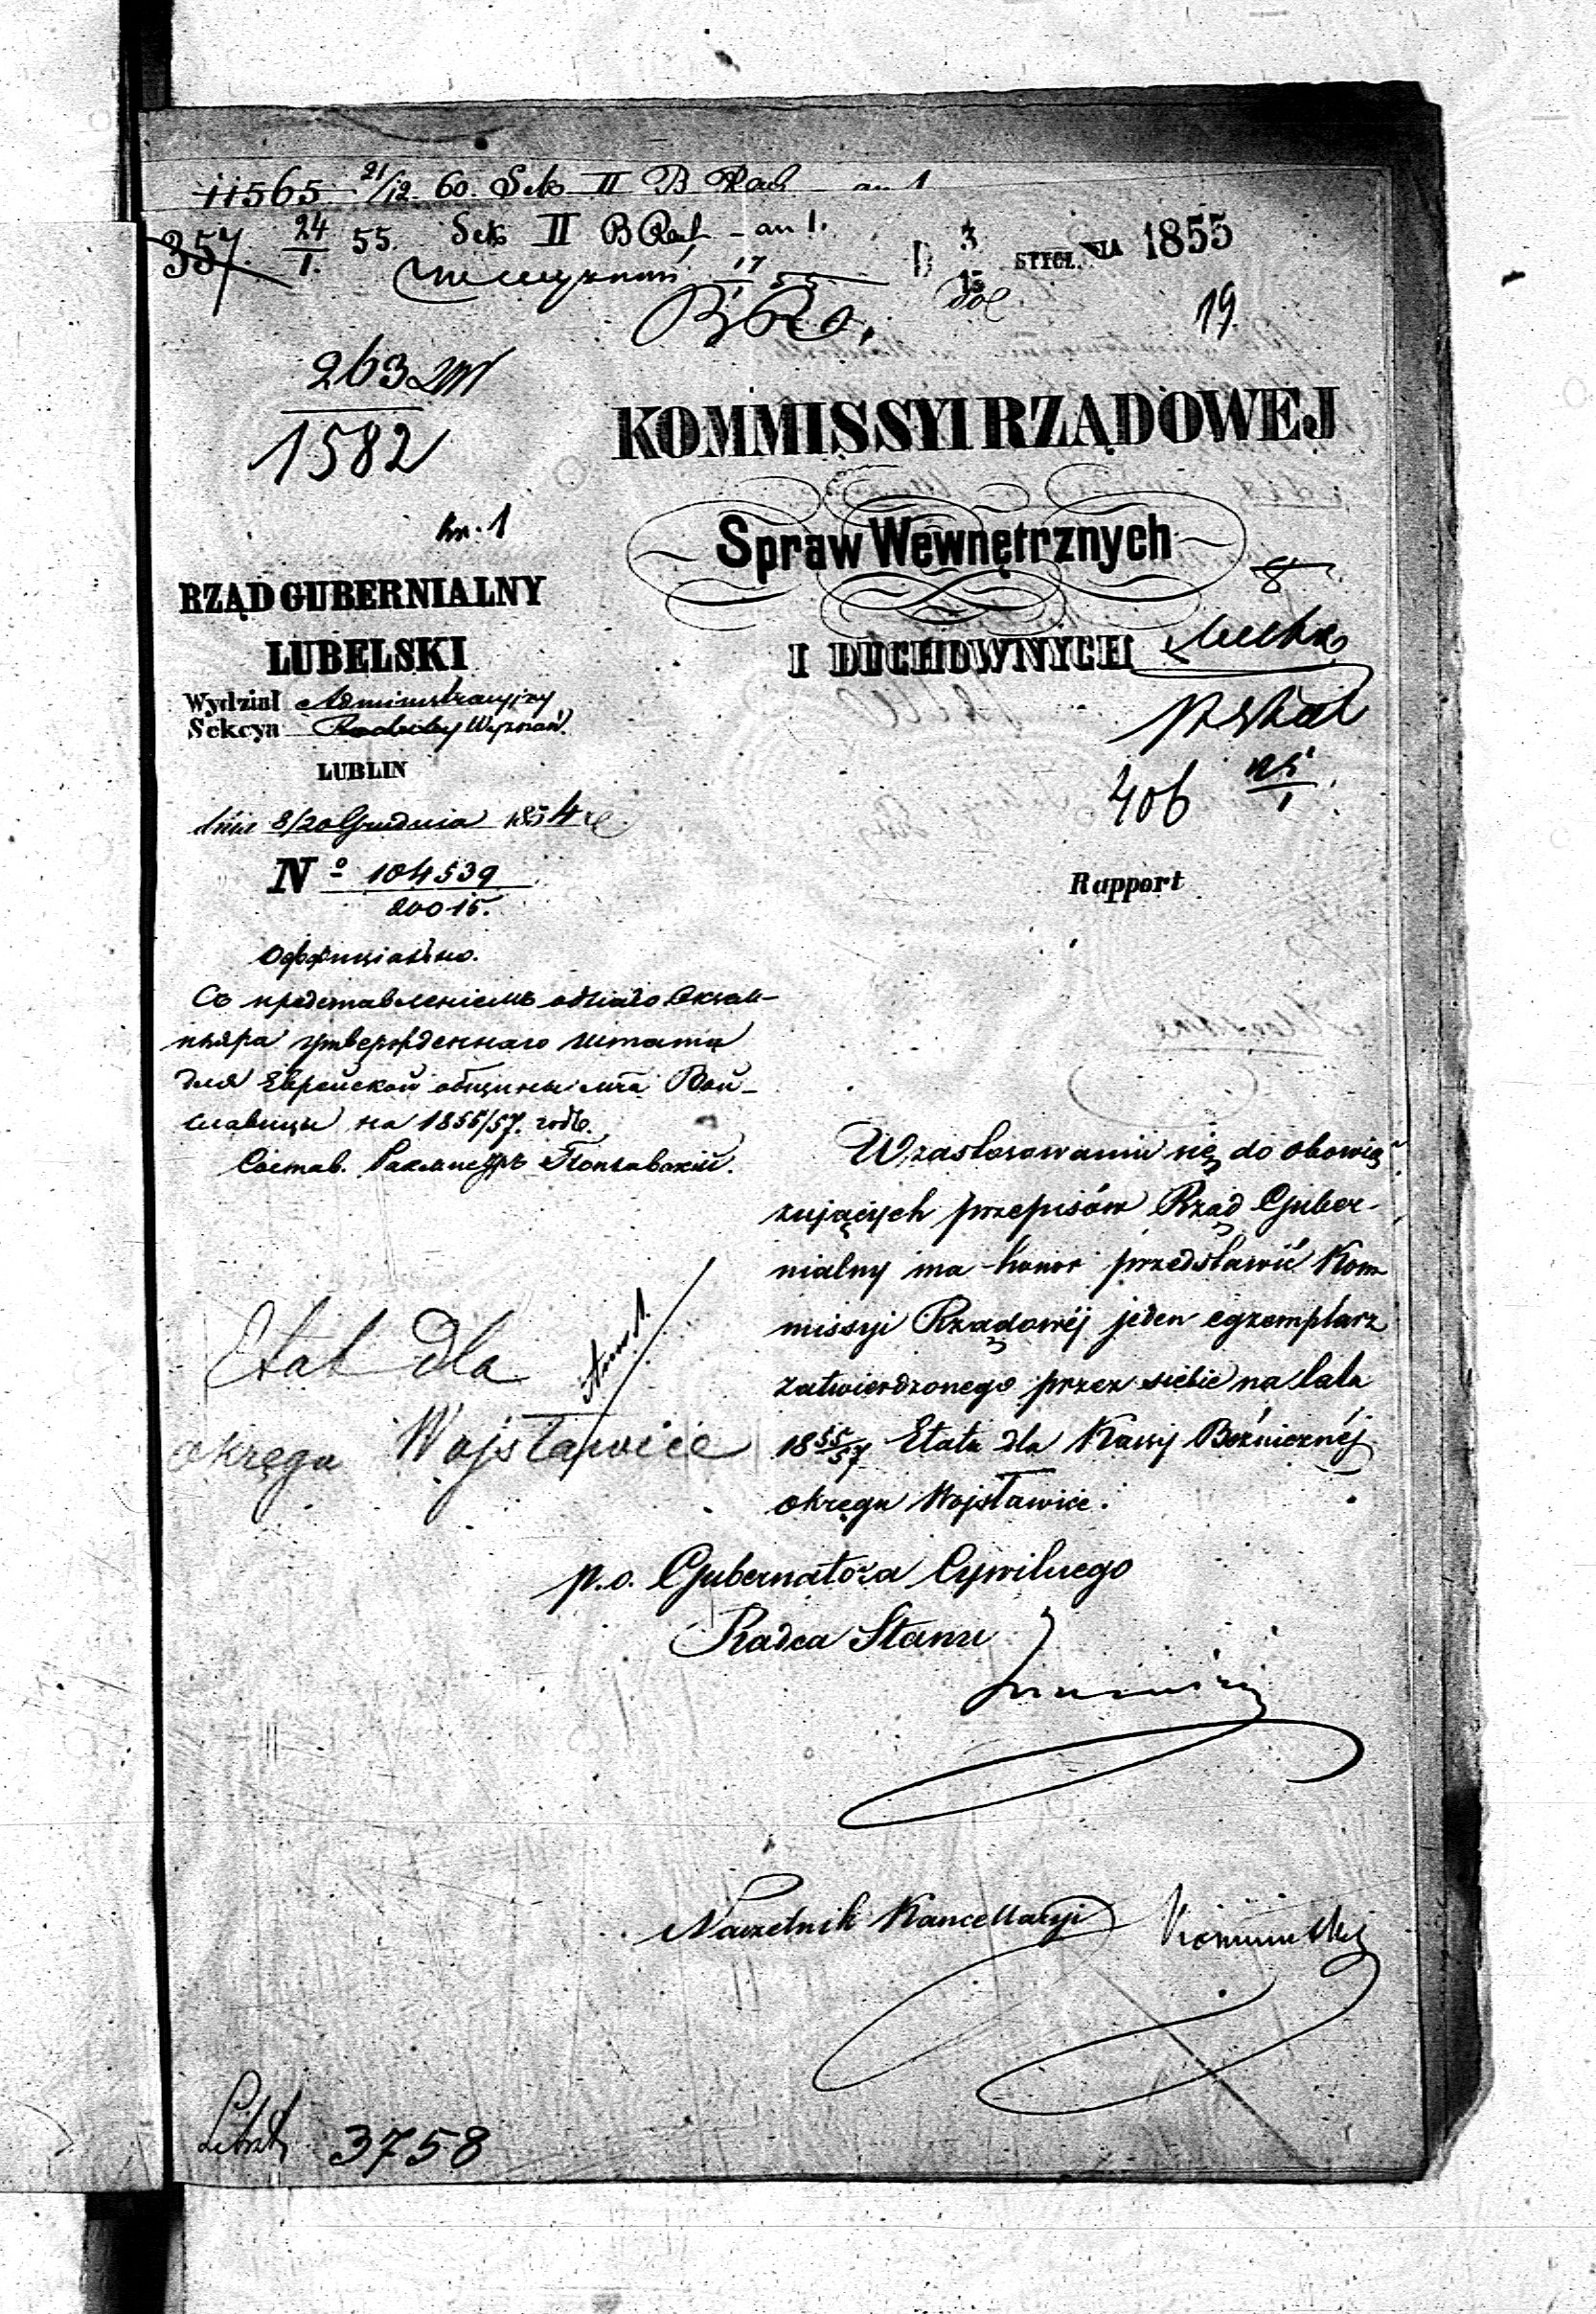 11565 21/12 60. Sek II B Rach an 1
357. 24/1. 55. Sek II B Rach - an 1.
17/1 55
D 3/15 STYCZNIA 1855
19
263
1582
an. 1
KOMMISSYI RZĄDOWEJ
Spraw Wewnętrznych
I DUCHOWNYCH
8
406
Rapport
RZĄD GUBERNIALNY
LUBELSKI
Wydział Administracyjny
Sekcya Wyznań
LUBLIN
dnia 8/20 Grudnia 1854 r.
No 104539
20015.
Оффиціально.
Съ представленіемъ одного Экзем-
пляра утвержденнаго штата
для Еврейской общины мѣ Вой-
славицы на 1855/57. годъ.
Состав.
Etat dla
okręgu Wojsławice
W zastosowaniu się do obowią
zujących przepisów Rząd Guber-
nialny ma honor przedstawić Kom
missyi Rządowéj jeden egzemplarz
zatwierdzonego przez siebie na lata
1855/57 Etatu dla Kassy Bożniczéj
okręgu Wojsławice.
p.o. Gubernatora Cywilnego
Radca Stanu
Naczelnik Kancellaryi
3758